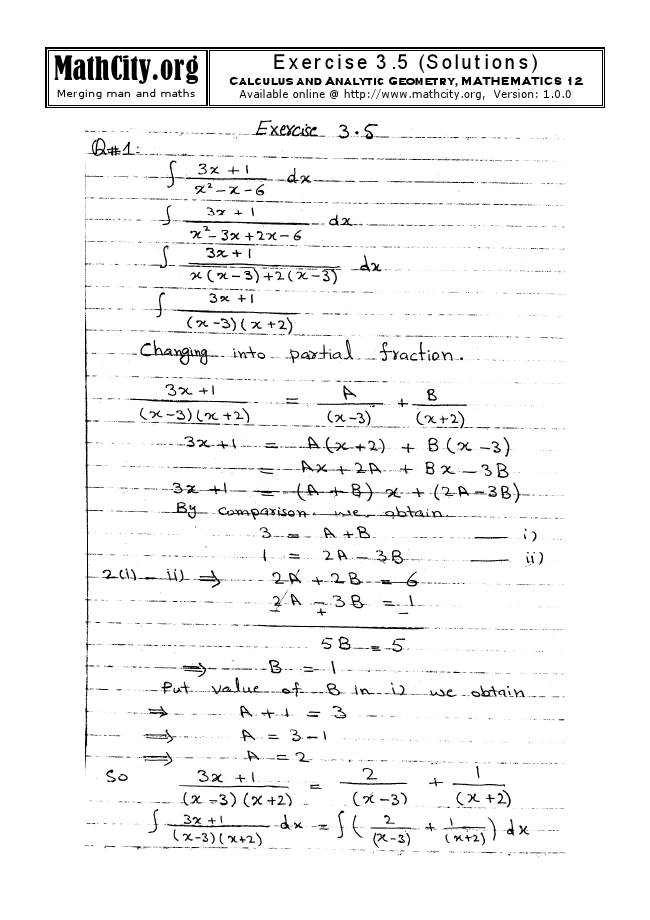 MathCity.org
Merging man and maths
Exercise 3.5 (Solutions)
CALCULUS AND ANALYTIC GEOMETRY, MATHEMATICS 12
Available online @ http://www.mathcity.org, Version: 1.0.0
Exercise 3.5
Q#1:
∫ (3x + 1)/(x² - x - 6) dx
∫ (3x + 1)/(x² - 3x + 2x - 6) dx
∫ (3x + 1)/(x(x - 3) + 2(x - 3)) dx
∫ (3x + 1)/((x - 3)(x + 2))
Changing into partial fraction.
(3x + 1)/((x - 3)(x + 2)) = A/(x - 3) + B/(x + 2)
3x + 1 = A(x + 2) + B(x - 3)
= Ax + 2A + Bx - 3B
3x + 1 = (A + B) x + (2A - 3B)
By comparison we obtain
3 = A + B —— i)
1 = 2A - 3B —— ii)
2(i) - ii) ⇒ 2A + 2B = 6
2A - 3B = 1
- + -
5B = 5
⇒ B = 1
Put value of B in i) we obtain
⇒ A + 1 = 3
⇒ A = 3 - 1
⇒ A = 2
So (3x + 1)/((x - 3)(x + 2)) = 2/(x - 3) + 1/(x + 2)
∫ (3x + 1)/((x - 3)(x + 2)) dx = ∫ (2/(x - 3) + 1/(x + 2)) dx